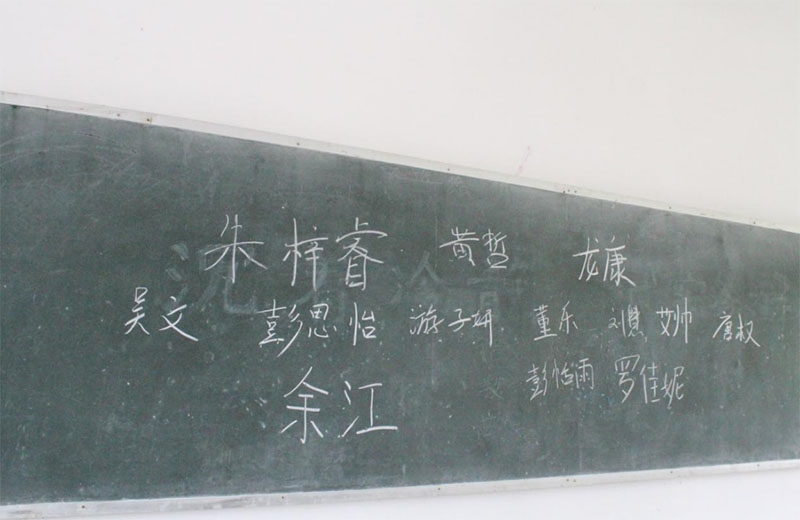 朱梓睿 黄哲 龙康
吴文 彭思怡 游子妍 董乐 刘慧 艾帅 唐权
彭怡雨 罗佳妮
余江